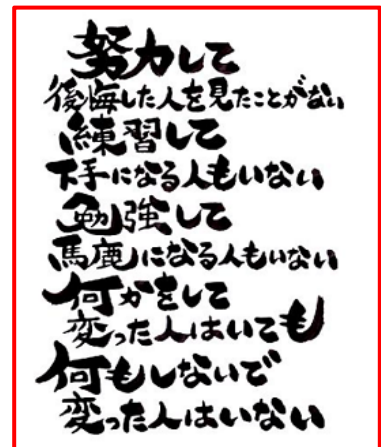 努力して
後悔した人を見たことがない
練習して
下手になる人もいない
勉強して
馬鹿になる人もいない
何かをして
変った人はいても
何もしないで
変った人はいない